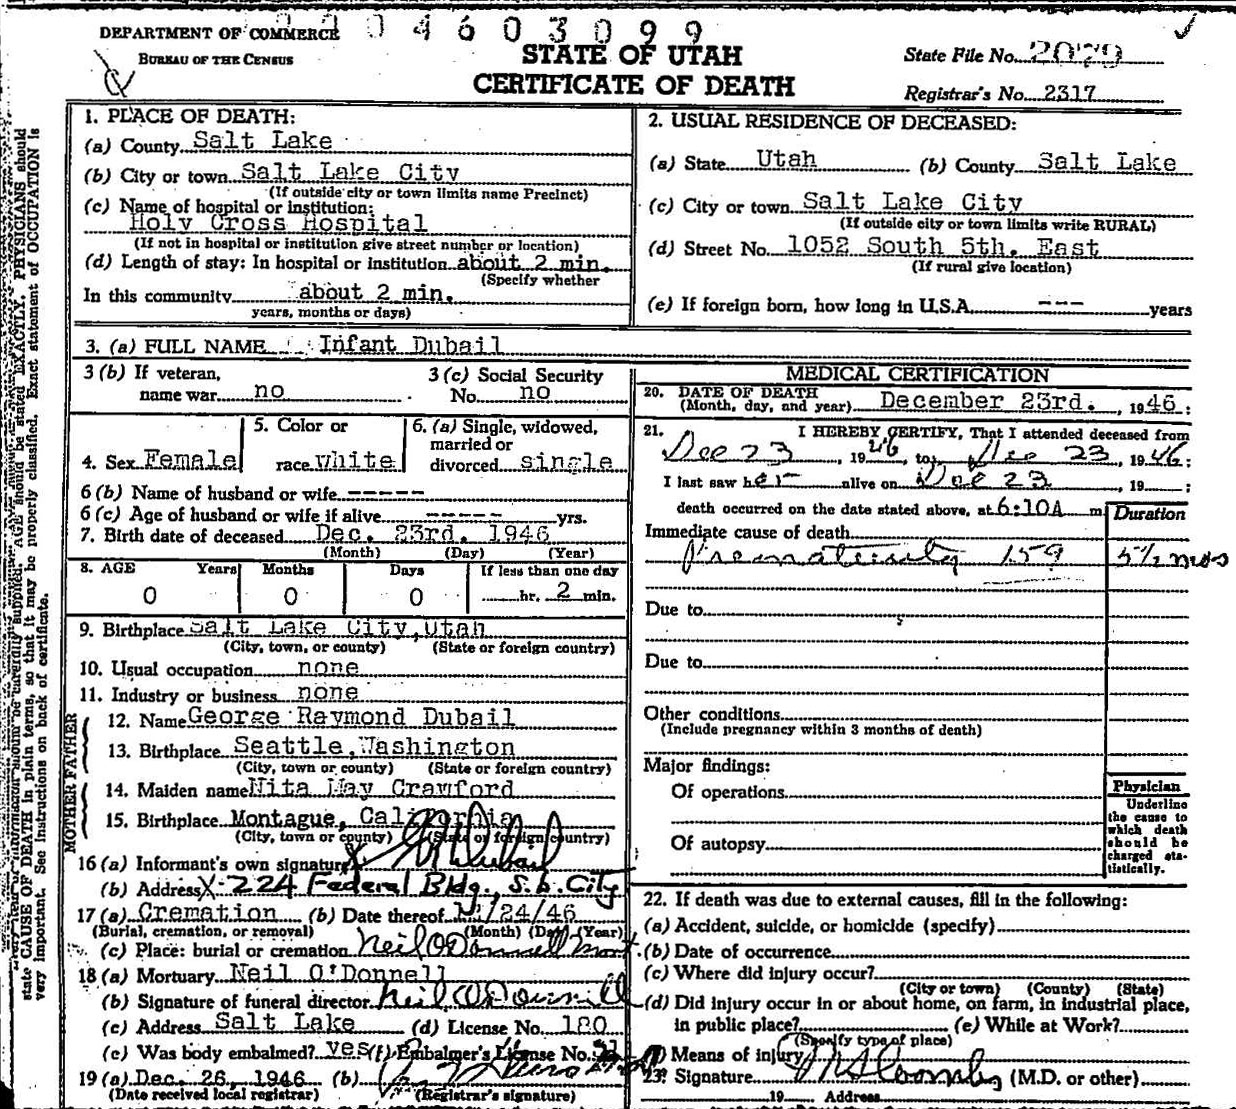 DEPARTMENT OF COMMERCE
BUREAU OF THE CENSUS
04603099
STATE OF UTAH
CERTIFICATE OF DEATH
State File No. 2079
Registrar's No. 2317
1. PLACE OF DEATH:
(a) County Salt Lake
(b) City or town Salt Lake City
(If outside city or town limits name Precinct)
(c) Name of hospital or institution:
Holy Cross Hospital
(If not in hospital or institution give street number or location)
(d) Length of stay: In hospital or institution about 2 min.
(Specify whether
In this community about 2 min.
years, months or days)
2. USUAL RESIDENCE OF DECEASED:
(a) State Utah (b) County Salt Lake
(c) City or town Salt Lake City
(If outside city or town limits write RURAL)
(d) Street No. 1052 South 5th. East
(If rural give location)
(e) If foreign born, how long in U.S.A. --- years
3. (a) FULL NAME Infant Dubail
3 (b) If veteran,
name war no
3 (c) Social Security
No. no
4. Sex Female
5. Color or
race white
6. (a) Single, widowed,
married or
divorced single
6 (b) Name of husband or wife -----
6 (c) Age of husband or wife if alive ----- yrs.
7. Birth date of deceased Dec. 23rd. 1946
(Month) (Day) (Year)
8. AGE Years Months Days If less than one day
0 0 0 hr. 2 min.
9. Birthplace Salt Lake City, Utah
(City, town, or county) (State or foreign country)
10. Usual occupation none
11. Industry or business none
FATHER
12. Name George Raymond Dubail
13. Birthplace Seattle, Washington
(City, town or county) (State or foreign country)
MOTHER
14. Maiden name Nita May Crawford
15. Birthplace Montague, California
(City, town or county) (State or foreign country)
16 (a) Informant's own signature X G R Dubail
(b) Address X-224 Federal Bldg., S.L. City
17 (a) Cremation (b) Date thereof 12/24/46
(Burial, cremation, or removal) (Month) (Day) (Year)
(c) Place: burial or cremation Neil O'Donnell Mort.
18 (a) Mortuary Neil O'Donnell
(b) Signature of funeral director Neil O'Donnell
(c) Address Salt Lake (d) License No. 180
(e) Was body embalmed? yes (f) Embalmer's License No.
19 (a) Dec. 26, 1946 (b)
(Date received local registrar) (Registrar's signature)
MEDICAL CERTIFICATION
20. DATE OF DEATH
(Month, day, and year) December 23rd. , 1946 ;
21. I HEREBY CERTIFY, That I attended deceased from
Dec 23 , 1946, to Dec 23 , 1946 ;
I last saw her alive on Dec 23 , 19 ;
death occurred on the date stated above, at 6:10A m.
Duration
Immediate cause of death
Prematurity 159 5 1/2 mos
Due to
Due to
Other conditions
(Include pregnancy within 3 months of death)
Major findings:
Of operations
Of autopsy
Physician
Underline
the cause to
which death
should be
charged sta-
tistically.
22. If death was due to external causes, fill in the following:
(a) Accident, suicide, or homicide (specify)
(b) Date of occurrence
(c) Where did injury occur?
(City or town) (County) (State)
(d) Did injury occur in or about home, on farm, in industrial place,
in public place? (e) While at Work?
(Specify type of place)
(f) Means of injury
23. Signature (M.D. or other)
19 Address
PHYSICIANS should
state CAUSE OF DEATH in plain terms, so that it may be properly classified. Exact statement of OCCUPATION is
very important. See instructions on back of certificate.